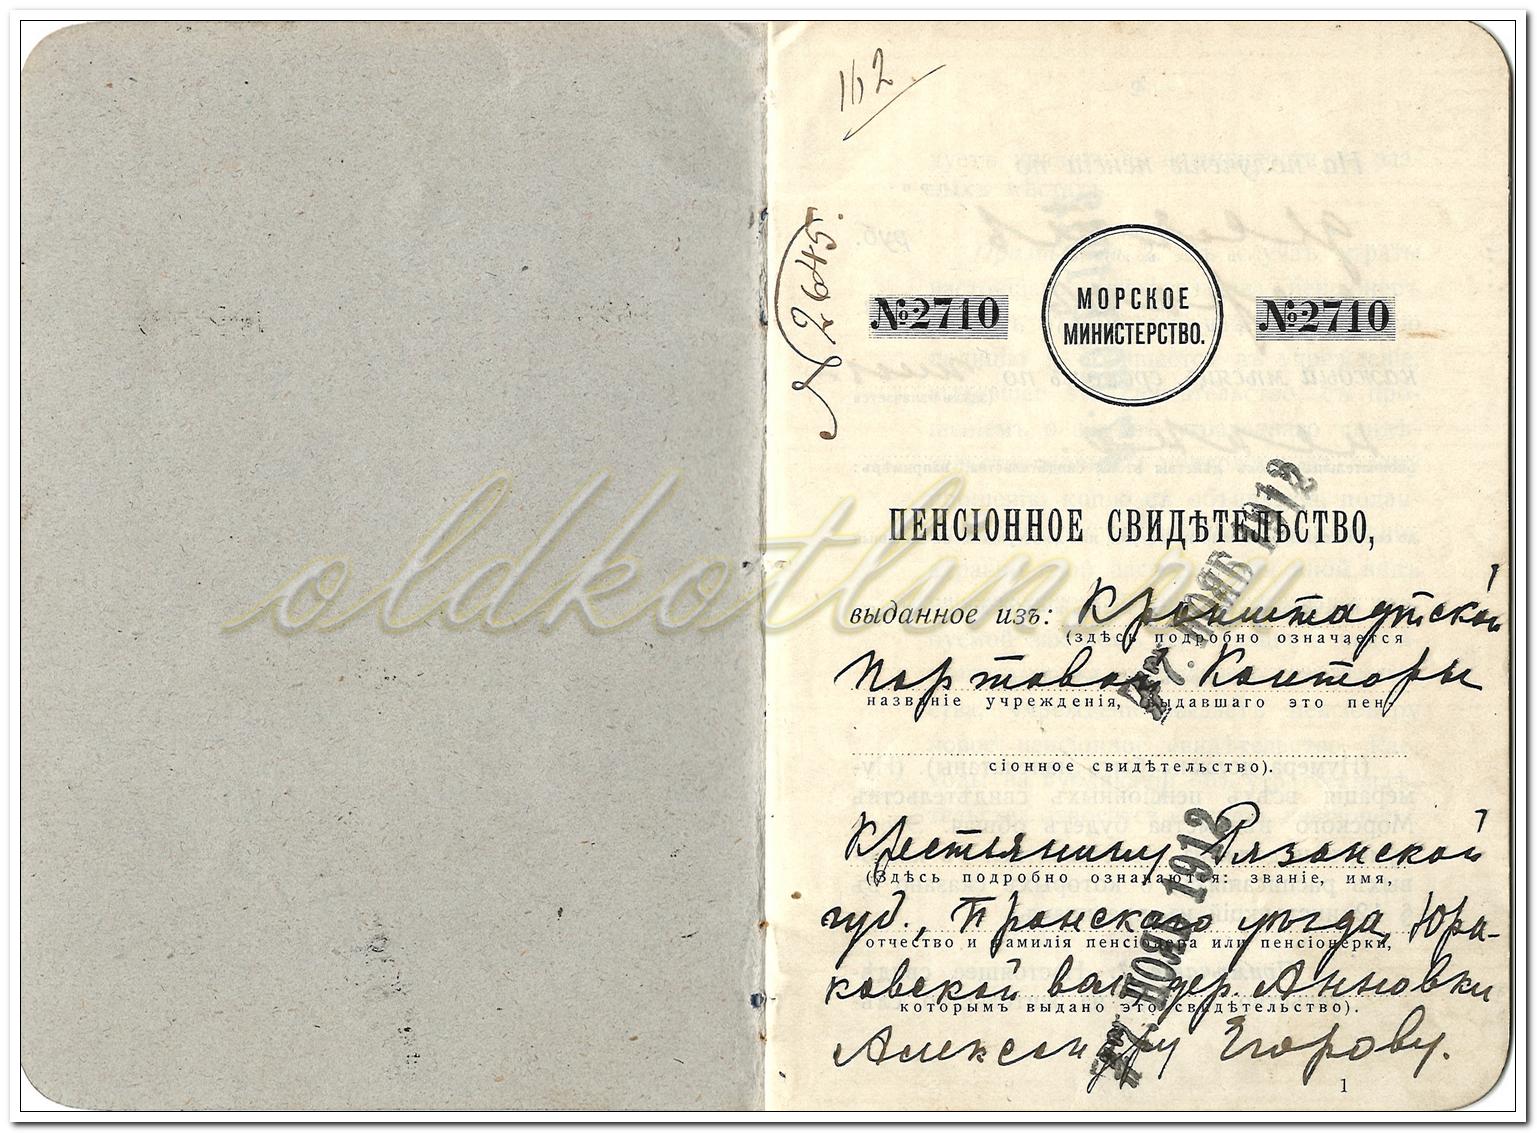 162
N 2645.
№2710
МОРСКОЕ
МИНИСТЕРСТВО.
№2710
ПЕНСІОННОЕ СВИДѢТЕЛЬСТВО,
выданное изъ: Кронштадтской
(здѣсь подробно означается
Портовой Конторы
названіе учрежденія, выдавшаго это пен-
сіонное свидѣтельство).
Крестьянину Рязанской
(Здѣсь подробно означаются: званіе, имя,
губ., Пронскаго уѣзда, Юра-
отчество и фамилія пенсіонера или пенсіонерки,
ковской вол. дер. Анновки
которымъ выдано это свидѣтельство).
Александру Егорову.
1
17. НОЯБ 1912
17 НОЯБ 1912
oldkotlin.ru